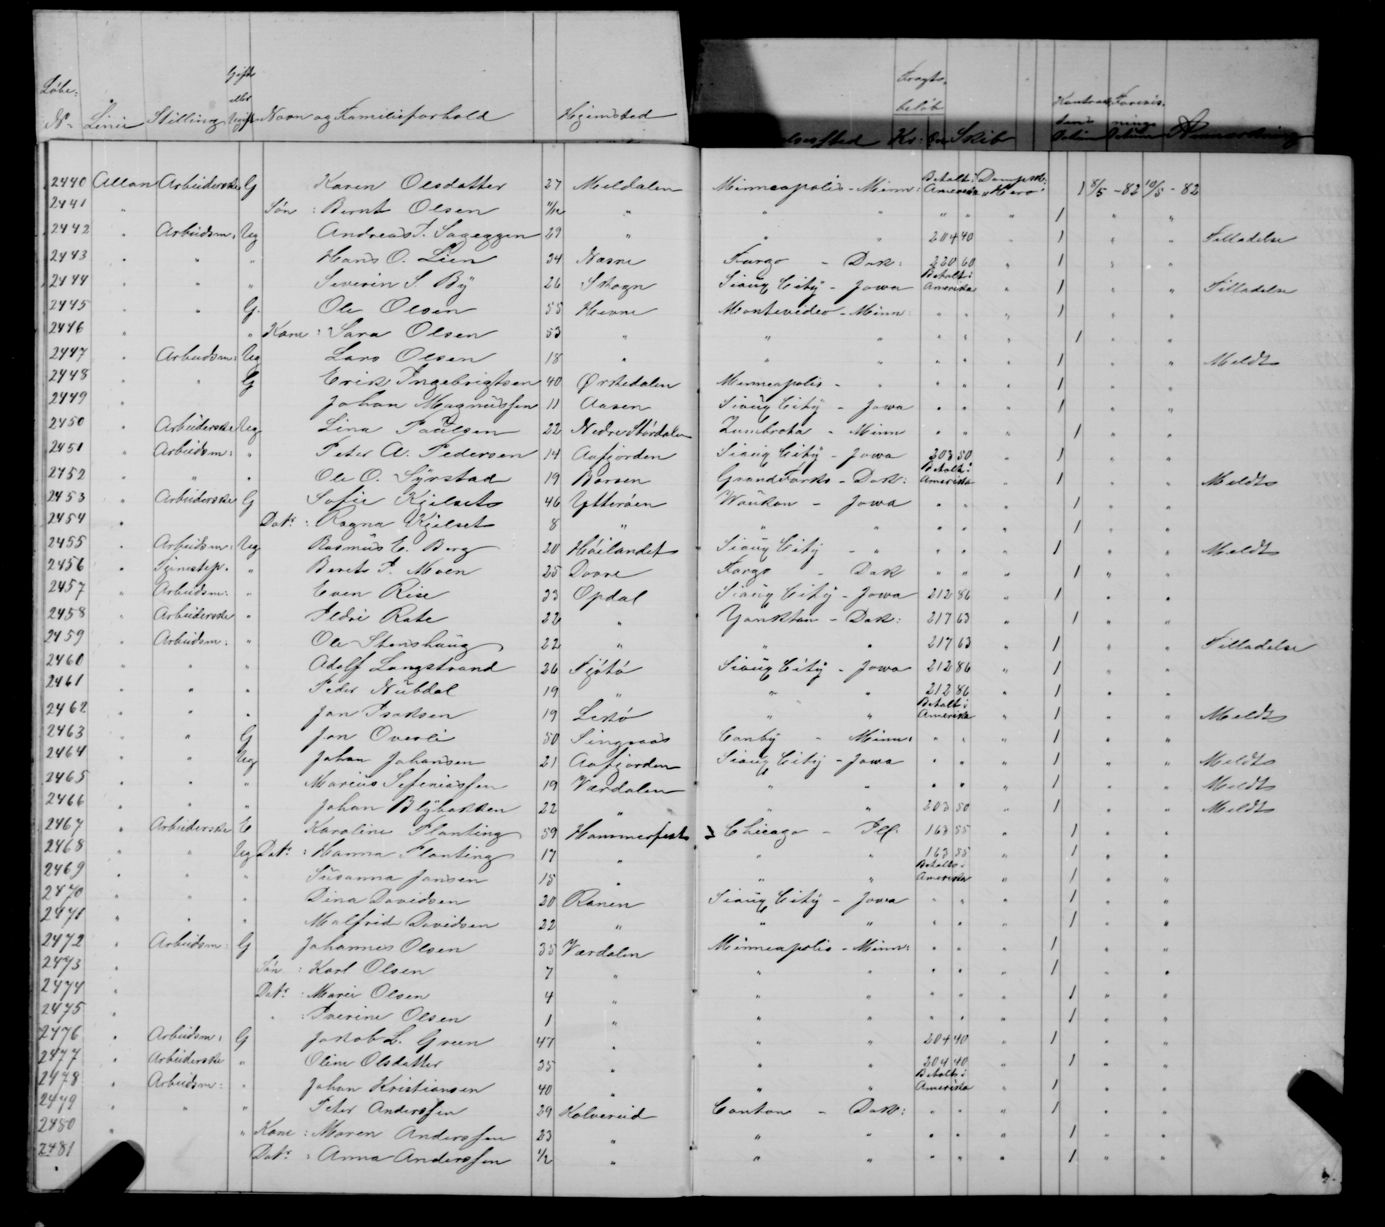 Løbe- No. Linie Stilling Gift eller Ugift Navn og Familieforhold Hjemsted Kr: Øre Skib Anmærkning
2440 Allan Arbeiderske G Karen Olsdatter 27 Meldalen Minneapolis - Minn: Betalt i Amerika Dampsk: "Hero" 1 9/5 - 82 10/5 - 82
2441 " Søn: Bernt Olsen 11/12 " " " " " " 1 " "
2442 " Arbeidsm: Ug Andreas P. Sageggen 29 " " " 204 40 " 1 " " Tilladelse
2443 " " " Hans O. Lien 24 Næsne Fargo - Dak: 220 60 " 1 " "
2444 " " " Severin S. By 26 Skogn Sioux City - Jowa Betalt i Amerika " 1 " " Tilladelse
2445 " " G. Ole Olsen 55 Hevne Montevideo - Minn: " " " 1 " "
2446 " " Kone: Sara Olsen 53 " " " " " " 1 " "
2447 " Arbeidsm: Ug Lars Olsen 18 " " " " " " 1 " " Meldt
2448 " " G Erik Ingebrigtsen 40 Ørkedalen Minneapolis - " " " " 1 " "
2449 " Johan Magnussen 11 Aasen Sioux City - Jowa " " " 1 " "
2450 " Arbeiderske Ug Lina Paulsen 22 Nedre Størdalen Zumbrota - Minn " " " 1 " "
2451 " Arbeidsm: " Peter A. Pedersen 14 Aafjorden Sioux City - Jowa 203 50 " 1 " "
2452 " " " Ole O. Syrstad 19 Børsen Grand Forks - Dak: Betalt i Amerika " 1 " " Meldt
2453 " Arbeiderske G Sofie Kjelset 46 Ytterøen Waukon - Jowa " " " 1 " "
2454 " Datr: Ragna Kjelset 8 " " " " " " 1 " "
2455 " Arbeidsm: Ug Rasmus E. Berg 20 Høilandet Sioux City - " " " " 1 " " Meldt
2456 " Tjenestep. " Berit P. Moen 25 Dovre Fargo - Dak " " " 1 " "
2457 " Arbeidsm: " Even Rise 23 Opdal Sioux City - Jowa 212 86 " 1 " "
2458 " Arbeiderske " Ildri Rate 22 " Yankton - Dak: 217 63 " 1 " "
2459 " Arbeidsm: " Ole Stenshaug 22 " " " 217 63 " 1 " " Tilladelse
2460 " " " Adolf Langstrand 26 Tjøtø Sioux City - Jowa 212 86 " 1 " "
2461 " " " Peder Nubdal 19 " " " 212 86 " 1 " "
2462 " " " Jan Isaksen 19 Lekø " " Betalt i Amerika " 1 " " Meldt
2463 " " G Jon Overli 50 Singsaas Canby - Minn: " " " 1 " "
2464 " " Ug Johan Johansen 21 Aafjorden Sioux City - Jowa " " " 1 " " Meldt
2465 " " " Marius Sefeniassen 19 Værdalen " " " " " 1 " " Meldt
2466 " " " Johan Blybakken 22 " " " 203 50 " 1 " " Meldt
2467 " Arbeiderske E Karoline Planting 59 Hammerfest Chicago - Ill. 163 55 " 1 " "
2468 " " Ug Datr: Hanna Planting 17 " " " 163 55 " 1 " "
2469 " " " Susanna Jansen 15 " " " Betalt i Amerika " 1 " "
2470 " " " Dina Davidsen 20 Ranen Sioux City - Jowa " " " 1 " "
2471 " " " Malfrid Davidsen 22 " " " " " " 1 " "
2472 " Arbeidsm: G Johannes Olsen 35 Værdalen Minneapolis - Minn: " " " 1 " "
2473 " Søn: Karl Olsen 7 " " " " " " 1 " "
2474 " Datr: Marie Olsen 4 " " " " " " 1 " "
2475 " " Iverine Olsen 1 " " " " " " 1 " "
2476 " Arbeidsm: G Jakob L. Green 47 " " " 204 40 " 1 " "
2477 " Arbeiderske " Oline Olsdatter 35 " " " 204 40 " 1 " "
2478 " Arbeidsm: " Johan Kristiansen 40 " " " Betalt i Amerika " 1 " "
2479 " " " Peter Anderssen 29 Kolvereid Canton - Dak: " " " 1 " "
2480 " " Kone: Maren Anderssen 23 " " " " " " 1 " "
2481 " Datr: Anna Anderssen 1/2 " " " " " " 1 " "